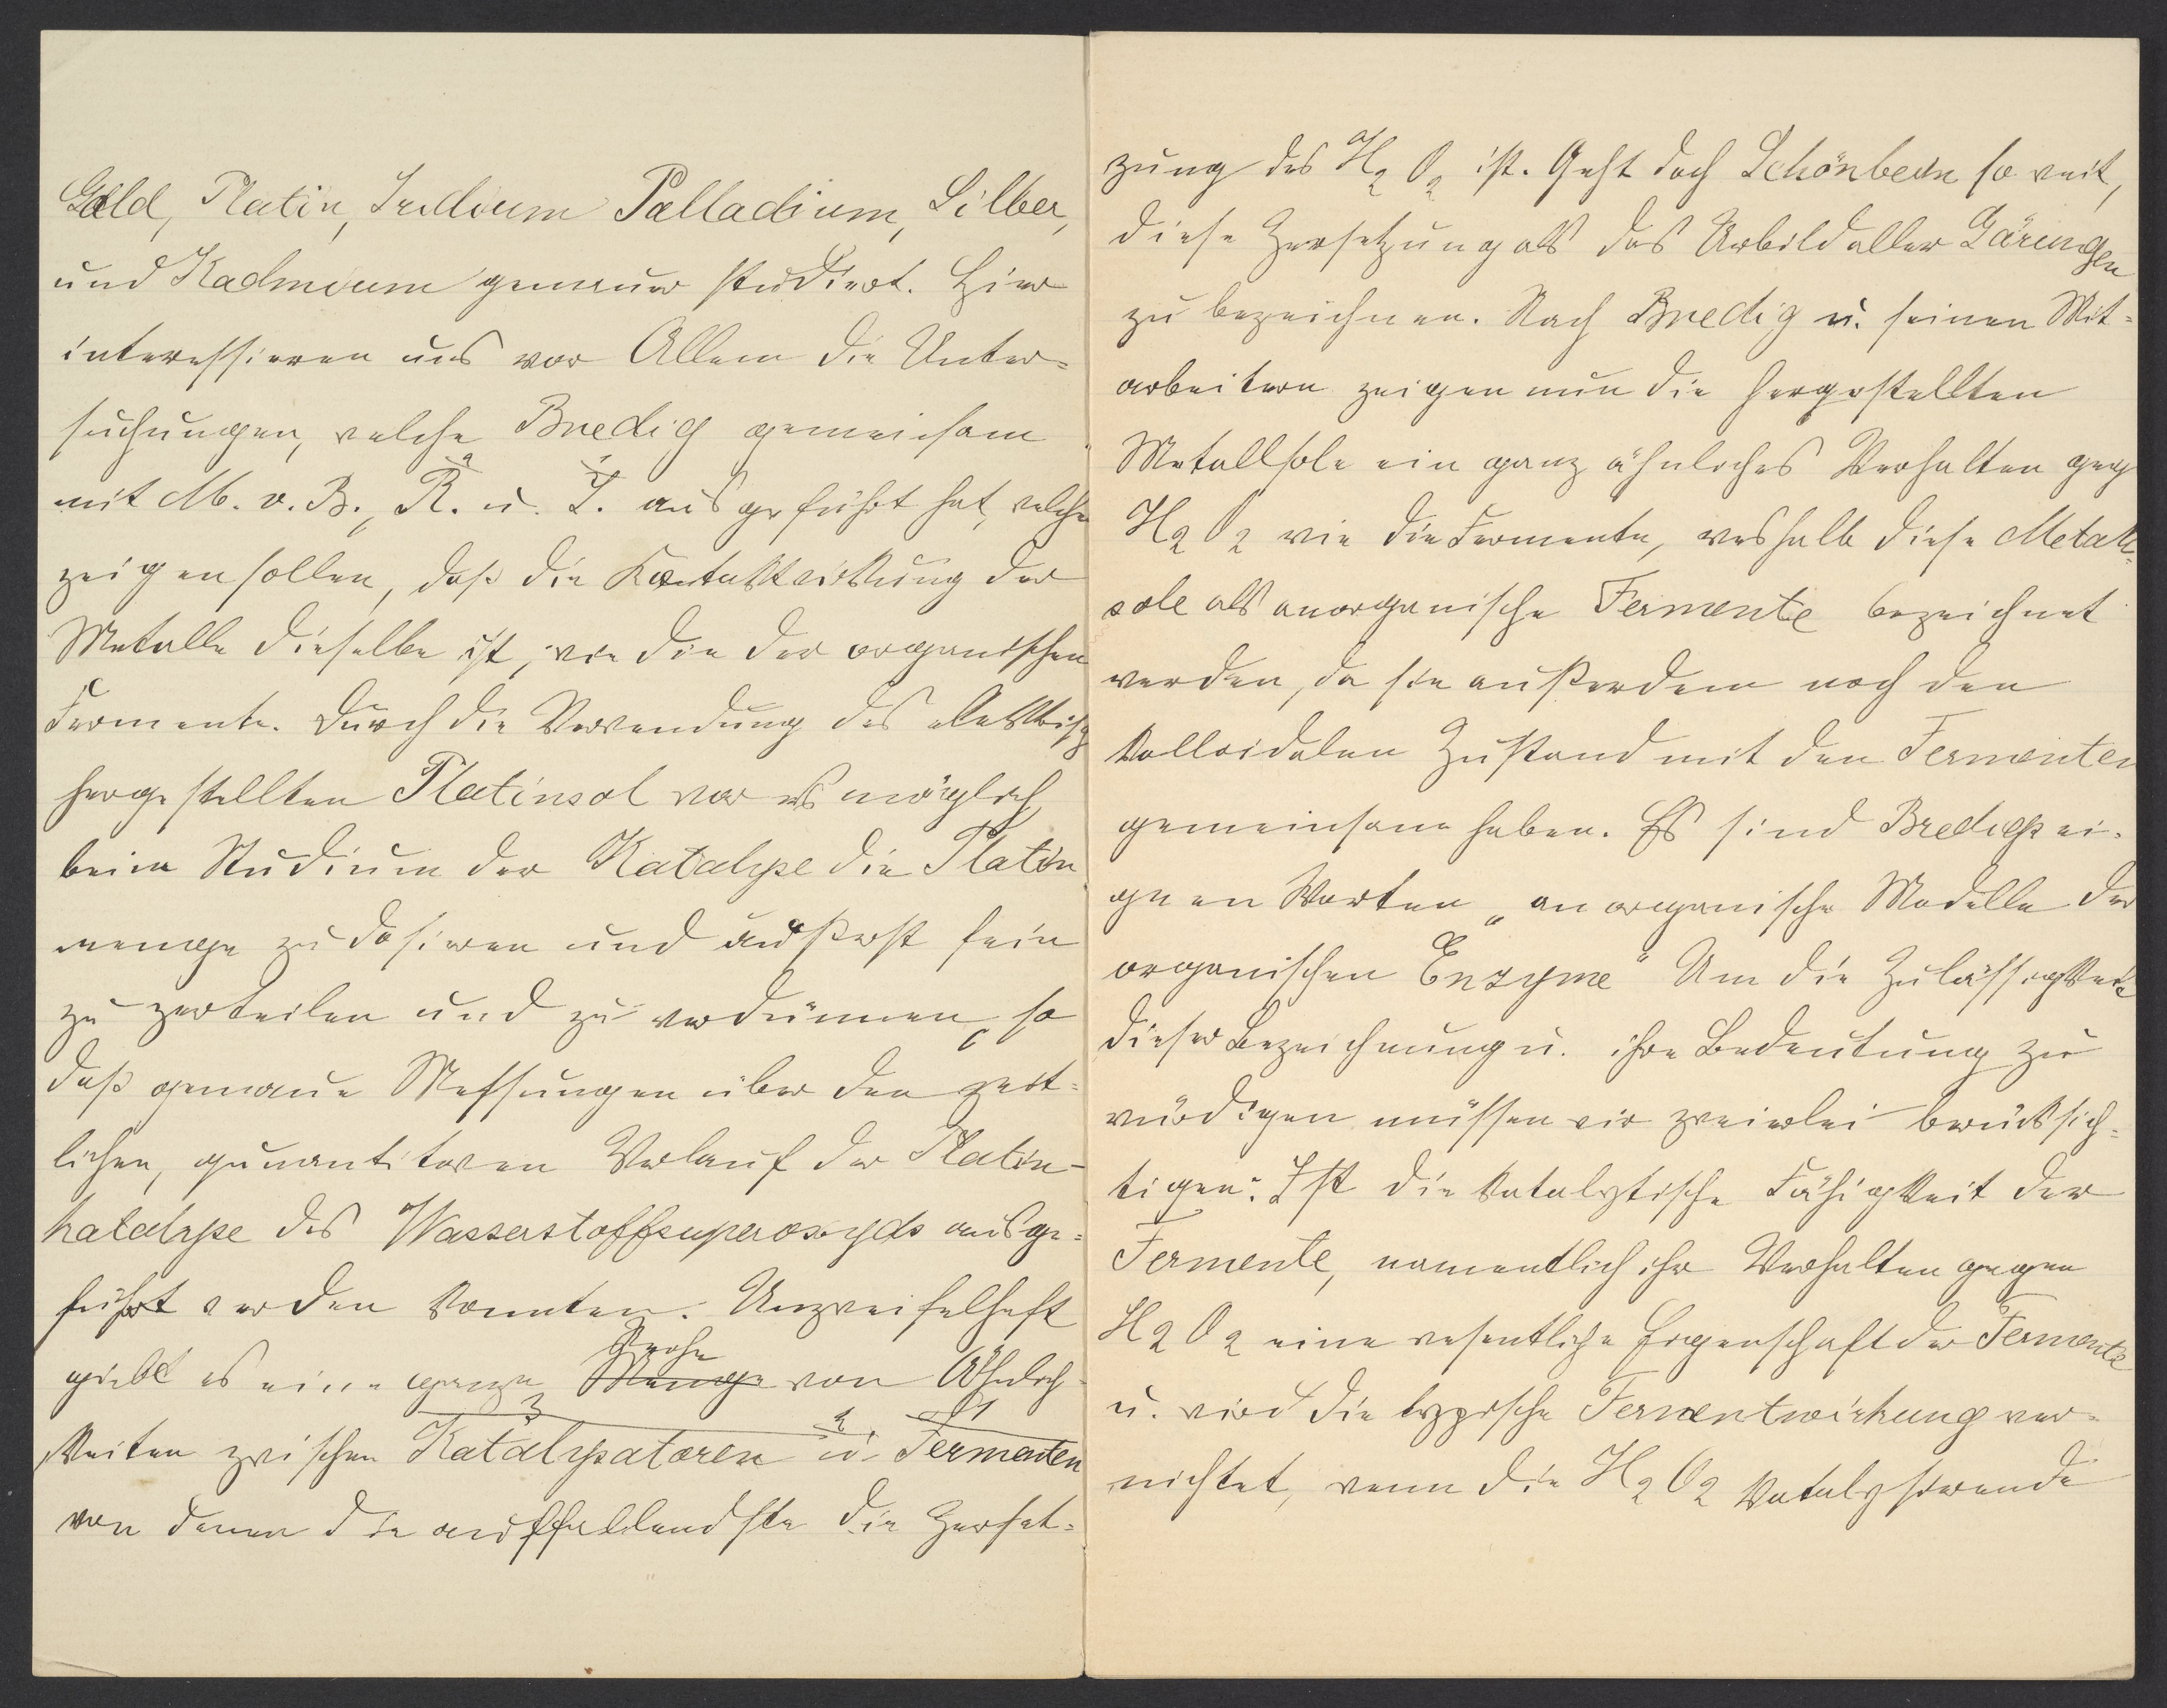 Gold, Platin, Iridium Palladium, Silber,
und Kadmium genauer studiert. Hier
interessieren uns vor Allem die Unter-
suchungen, welche Bredig gemeinsam
mit M. v. B., R. u. I. ausgeführt hat, welche
zeigen sollen, daß die Kontaktwirkung der
Metalle dieselbe ist, wie die der organischen
Fermente. Durch die Verwendung des elektrisch
hergestellten Platinsol war es möglich,
beim Studium der Katalyse die Platin
menge zu dosieren und äußerst fein
zu zerteilen und zu verdünnen, so
daß genaue Messungen über den zeit-
lichen, quantitaven Verlauf der Platin-
katalyse des Wasserstoffsuperoxyds ausge-
führt werden konnten. Unzweifelhaft
giebt es eine ganze Menge von Ähnlich-
keiten zwischen Katalysatoren u. Fermenten
von denen die auffallendste die Zerset-
zung des H2O2 ist. Geht doch Schönbein so weit,
diese Zersetzung als das Urbild aller Gärungen
zu bezeichnen. Nach Bredig u. seinen Mit-
arbeitern zeigen nun die hergestellten
Metallsole ein ganz ähnliches Verhalten geg
H2O2 wie die Fermente, weshalb diese Metall-
sole als anorganische Fermente bezeichnet
werden, da sie außerdem noch den
kolloidalen Zustand mit den Fermenten
gemeinsam haben. Es sind Bredigs ei-
genen Worten „anorganische Modelle der
organischen Enzyme“ Um die Zulässigkeit
dieser Bezeichnung u. ihre Bedeutung zu
würdigen müssen wir zweierlei berücksich-
tigen: Ist die katalytische Fähigkeit der
Fermente, namentlich ihr Verhalten gegen
H2O2 eine wesentliche Eigenschaft der Fermente
u. wird die typische Fermentwirkung ver-
nichtet, wenn die H2O2 katalysierende